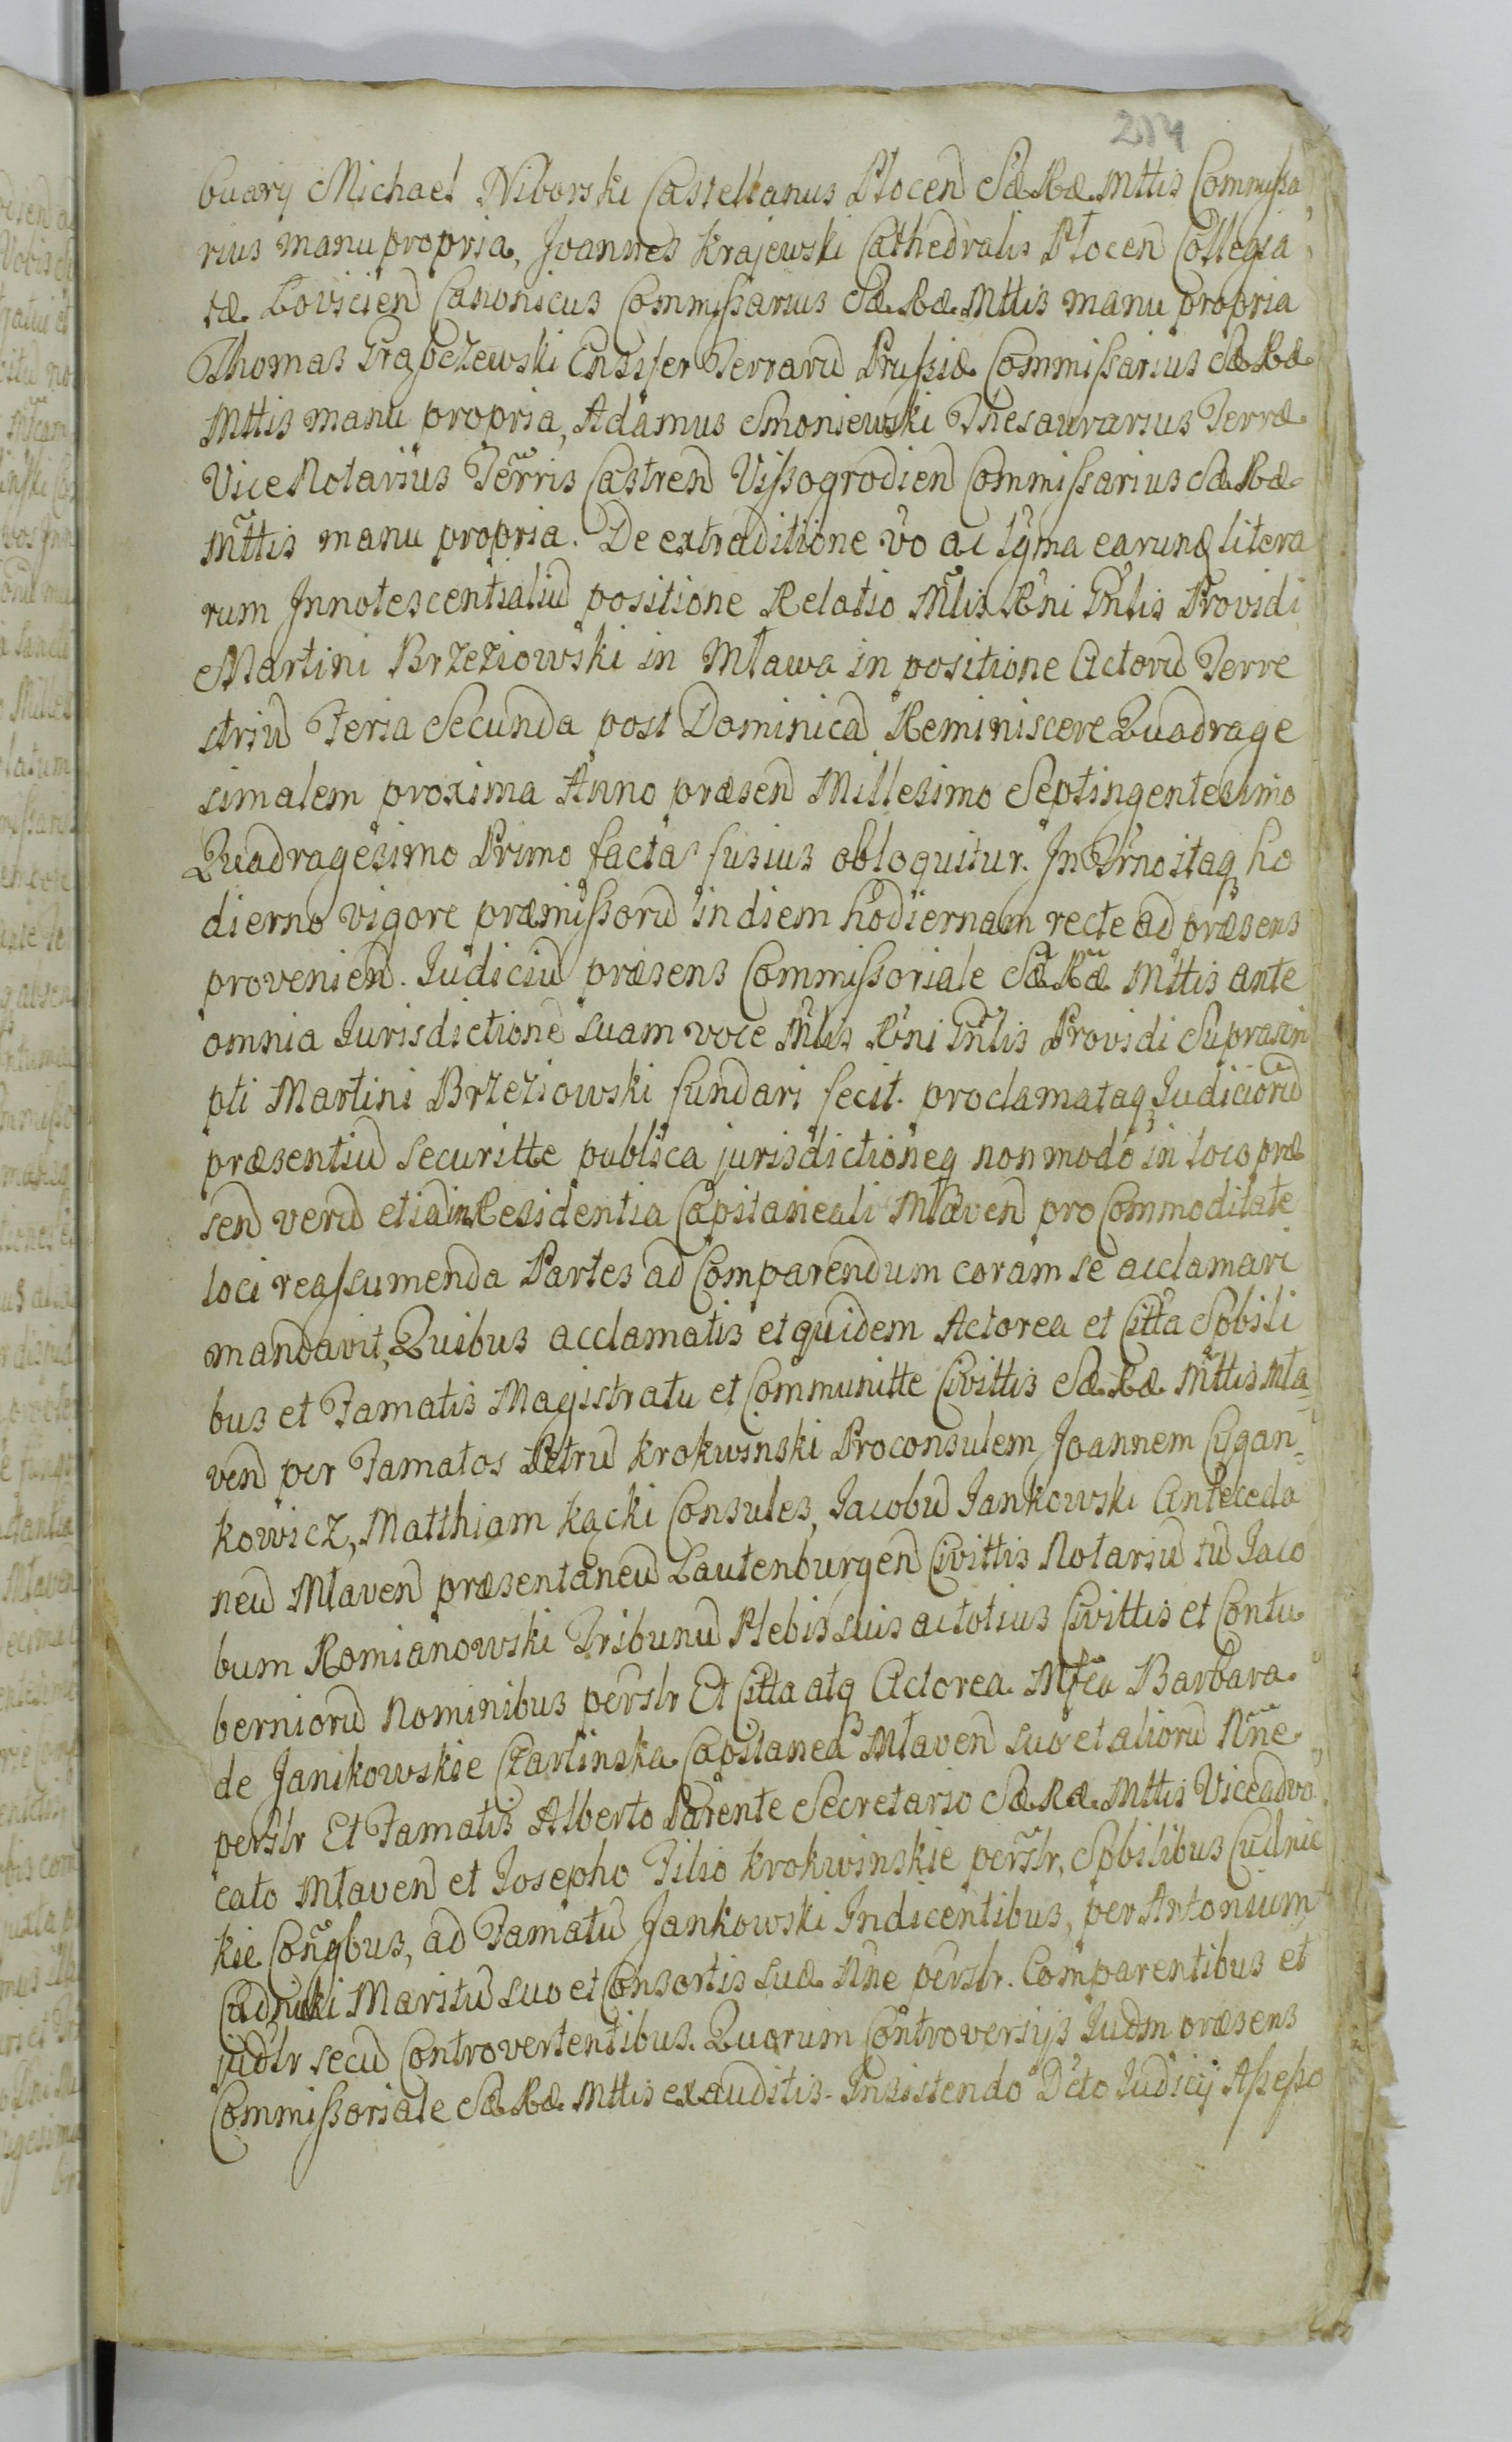 204
buarij Michael Niborski Castellanus Plocen̄ Sæ Ræ Mttis Commissa
rius manu propria, Joannes Krajewski Cathedralis Plocen̄ Collegia
tæ Lovicien̄ Canonicus Commissarius Sæ Ræ Mttis manu propria
Thomas Grąbczewski Ensifer Terrarū Prussiæ Commissarius Sæ Ræ
Mttis manu propria, Adamus Smoniewski Thesaurarius Terræ
Vice Notarius Terris Castren̄ Vissogrodien̄ Commissarius Sæ Ræ
Mttis manu propria. De extraditione vo ac lgma earunq litera
rum Innotescentialiū positione Relatio Mlis Rni Gnlis Providi
Martini Brzeziowski in Mława in positione Actorū Terre
striū Feria Secunda post Dominicā Reminiscere Quadrage
simalem proxima Anno præsen̄ Millesimo Septingentesimo
Quadragesimo Primo facta fusius obloquitur. In Trno itaq ho
dierno vigore præmissorū in diem hodiernam recte ad præsens
provenien̄. Judiciū præsens Commissoriale Sæ Ræ Mttis ante
omnia Jurisdictionē suam voce Mlis Rni Gnlis Providi Suprascri
pti Martini Brzeziowski fundari fecit. proclamataq Judiciorū
præsentiū securitte publica jurisdictioneq non modo in loco præ
sen̄ verū etiā in Residentia Capitaneali Mławen̄ pro Commoditate
loci reassumenda Partes ad Comparendum coram se acclamari
mandavit, Quibus acclamatis et quidem Actorea et Citta Spbili
bus et Famatis Magistratu et Communitte Civittis Sæ Ræ Mttis Mła-
ven̄ per Famatos Petrū Krokwinski Proconsulem, Joannem Cygan-
kowicz, Matthiam Kącki Consules, Jacobū Jankowski Anteceda
neū Mlaven̄ præsentaneū Lautenburgen̄ Civittis Notariū tū Jaco
bum Romianowski Tribunū Plebis suis ac totius Civittis et Contu
berniorū Nominibus perslr Et Citta atq Actorea Mfca Barbara
de Janikowskie Czarlinska Capitanea Mlaven̄ suo et aliorū Nne
perslr Et Famatis Alberto Parente Secretario Sæ Ræ Mttis Viceadvo
cato Mlaven̄ et Josepho Filio Krokwinskie perslr, Spbilibus Cudnic
kie Congbus, ad Famatū Jankowski Indicentibus, per Antonium
Cudnicki Maritū suo et Consortis suæ Nne perslr. Comparentibus et
judlr secū Controvertentibus. Quorum Controversijs Judm præsens
Commissoriale Sæ Ræ Mttis exauditis. Insistendo Dcto Judicij Assesso